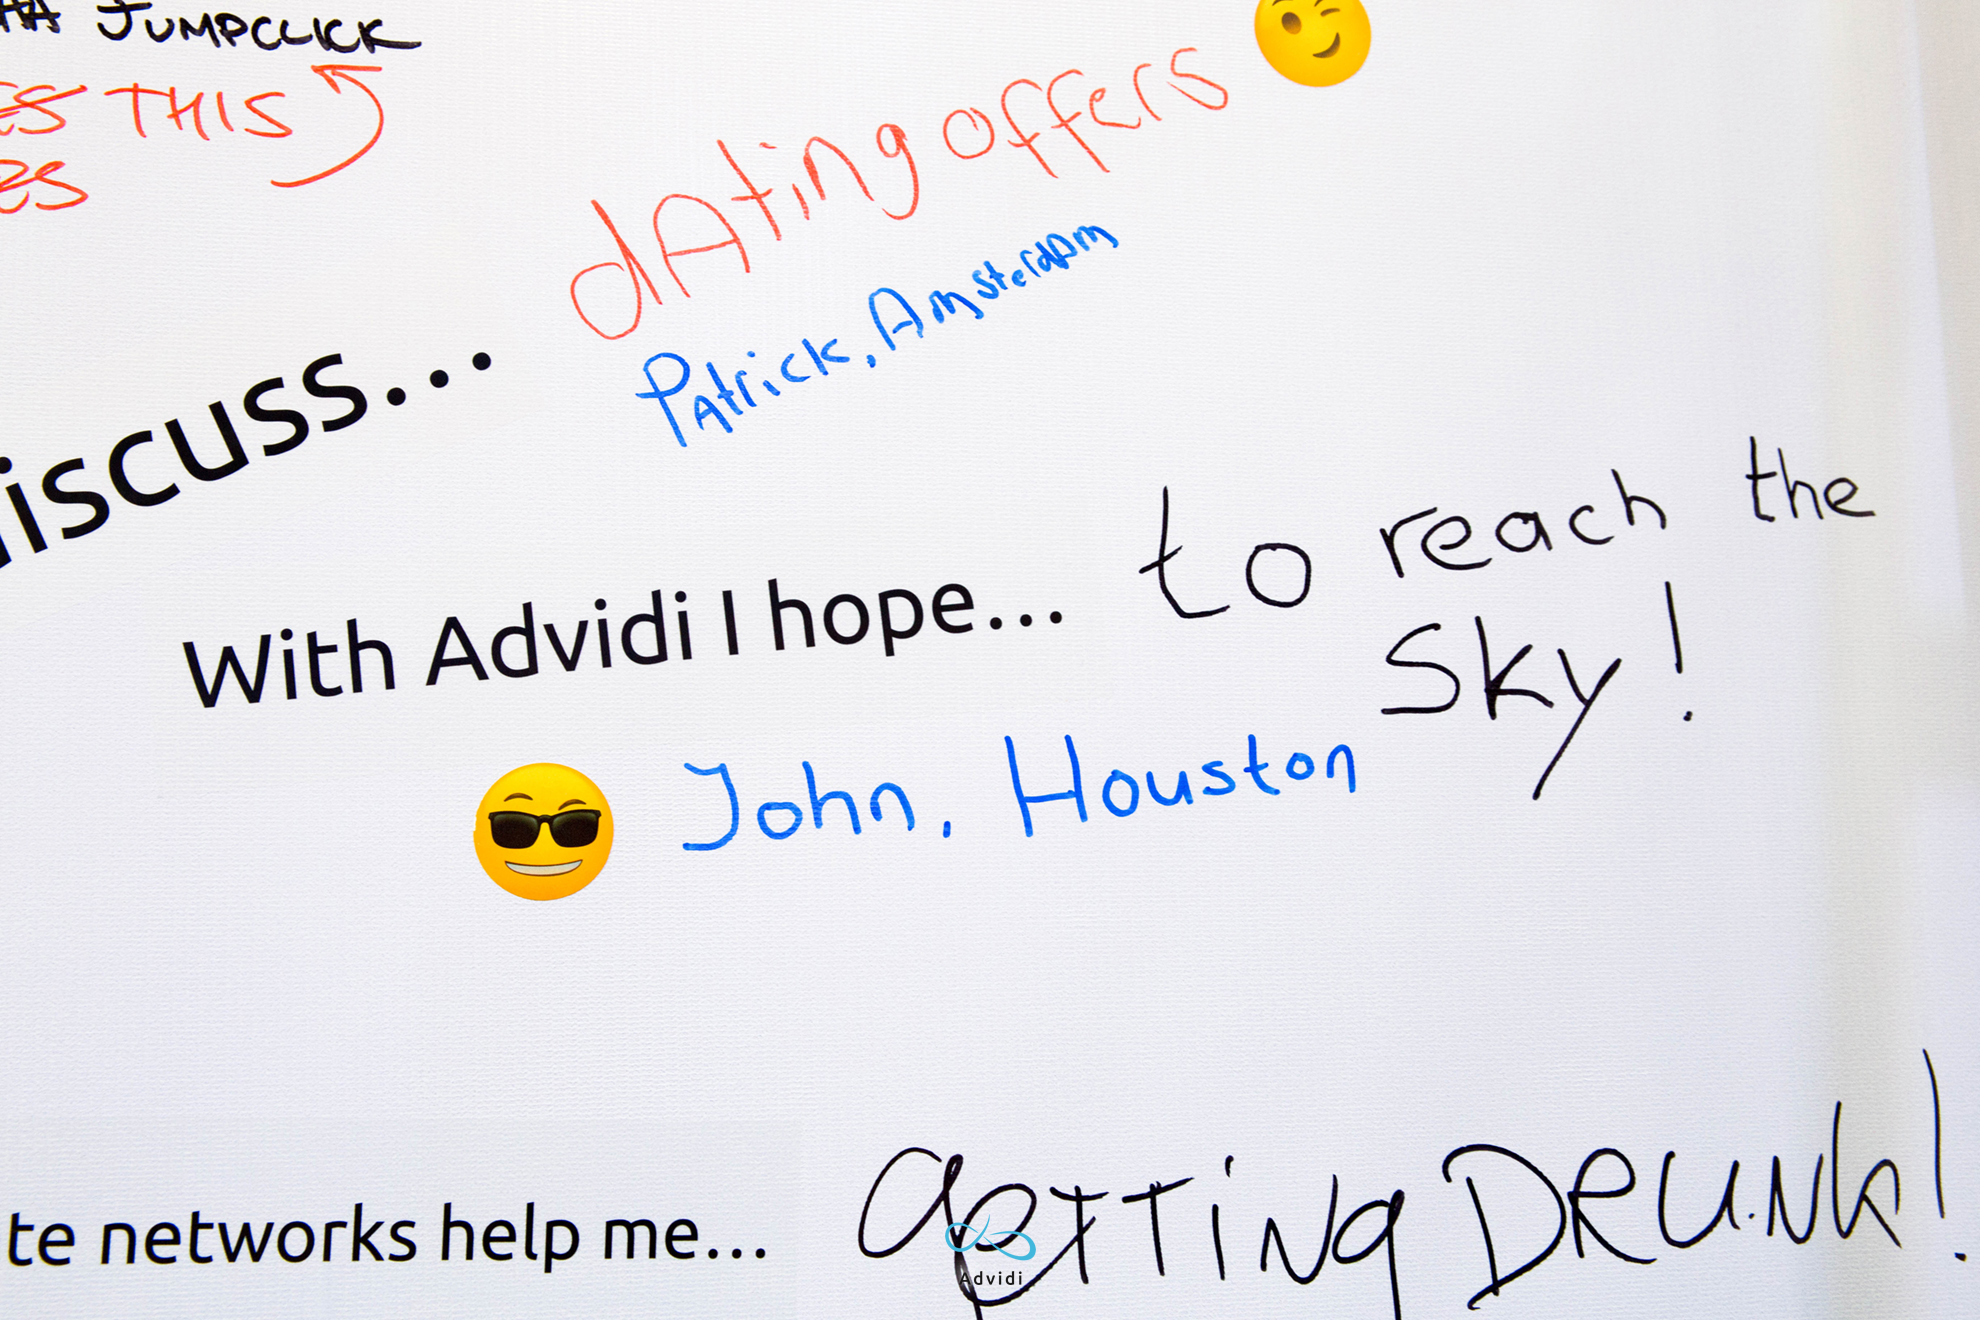 JUMPCLICK
THIS
dAting offers
iscuss...
PAtrick, AmsterdAm
With Advidi I hope...
to reach the
Sky!
John, Houston
te networks help me...
GETTING DRUNK!
Advidi